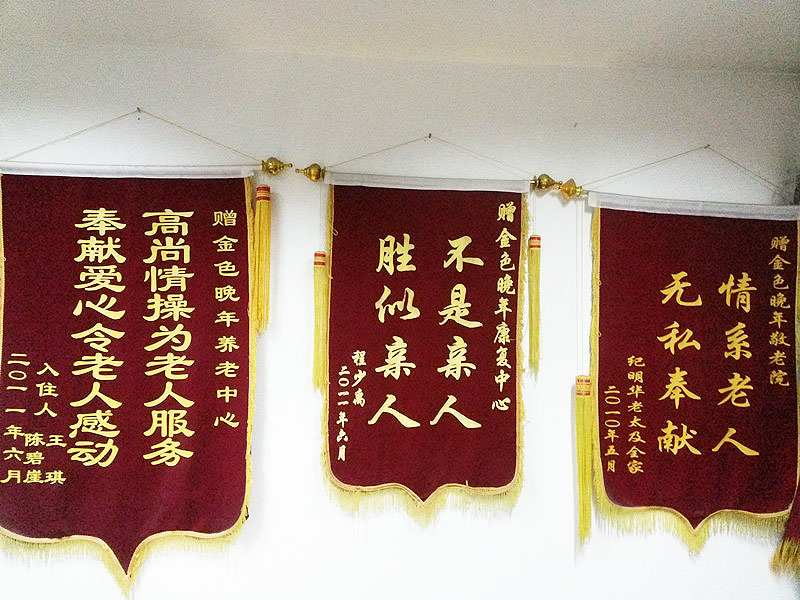 赠金色晚年养老中心
高尚情操为老人服务
奉献爱心令老人感动
入住人 王琪
陈碧崖
二〇一一年六月
赠金色晚年康复中心
不是亲人
胜似亲人
程少禹
二〇一一年六月
赠金色晚年敬老院
情系老人
无私奉献
纪明华老太及全家
二〇一〇年五月